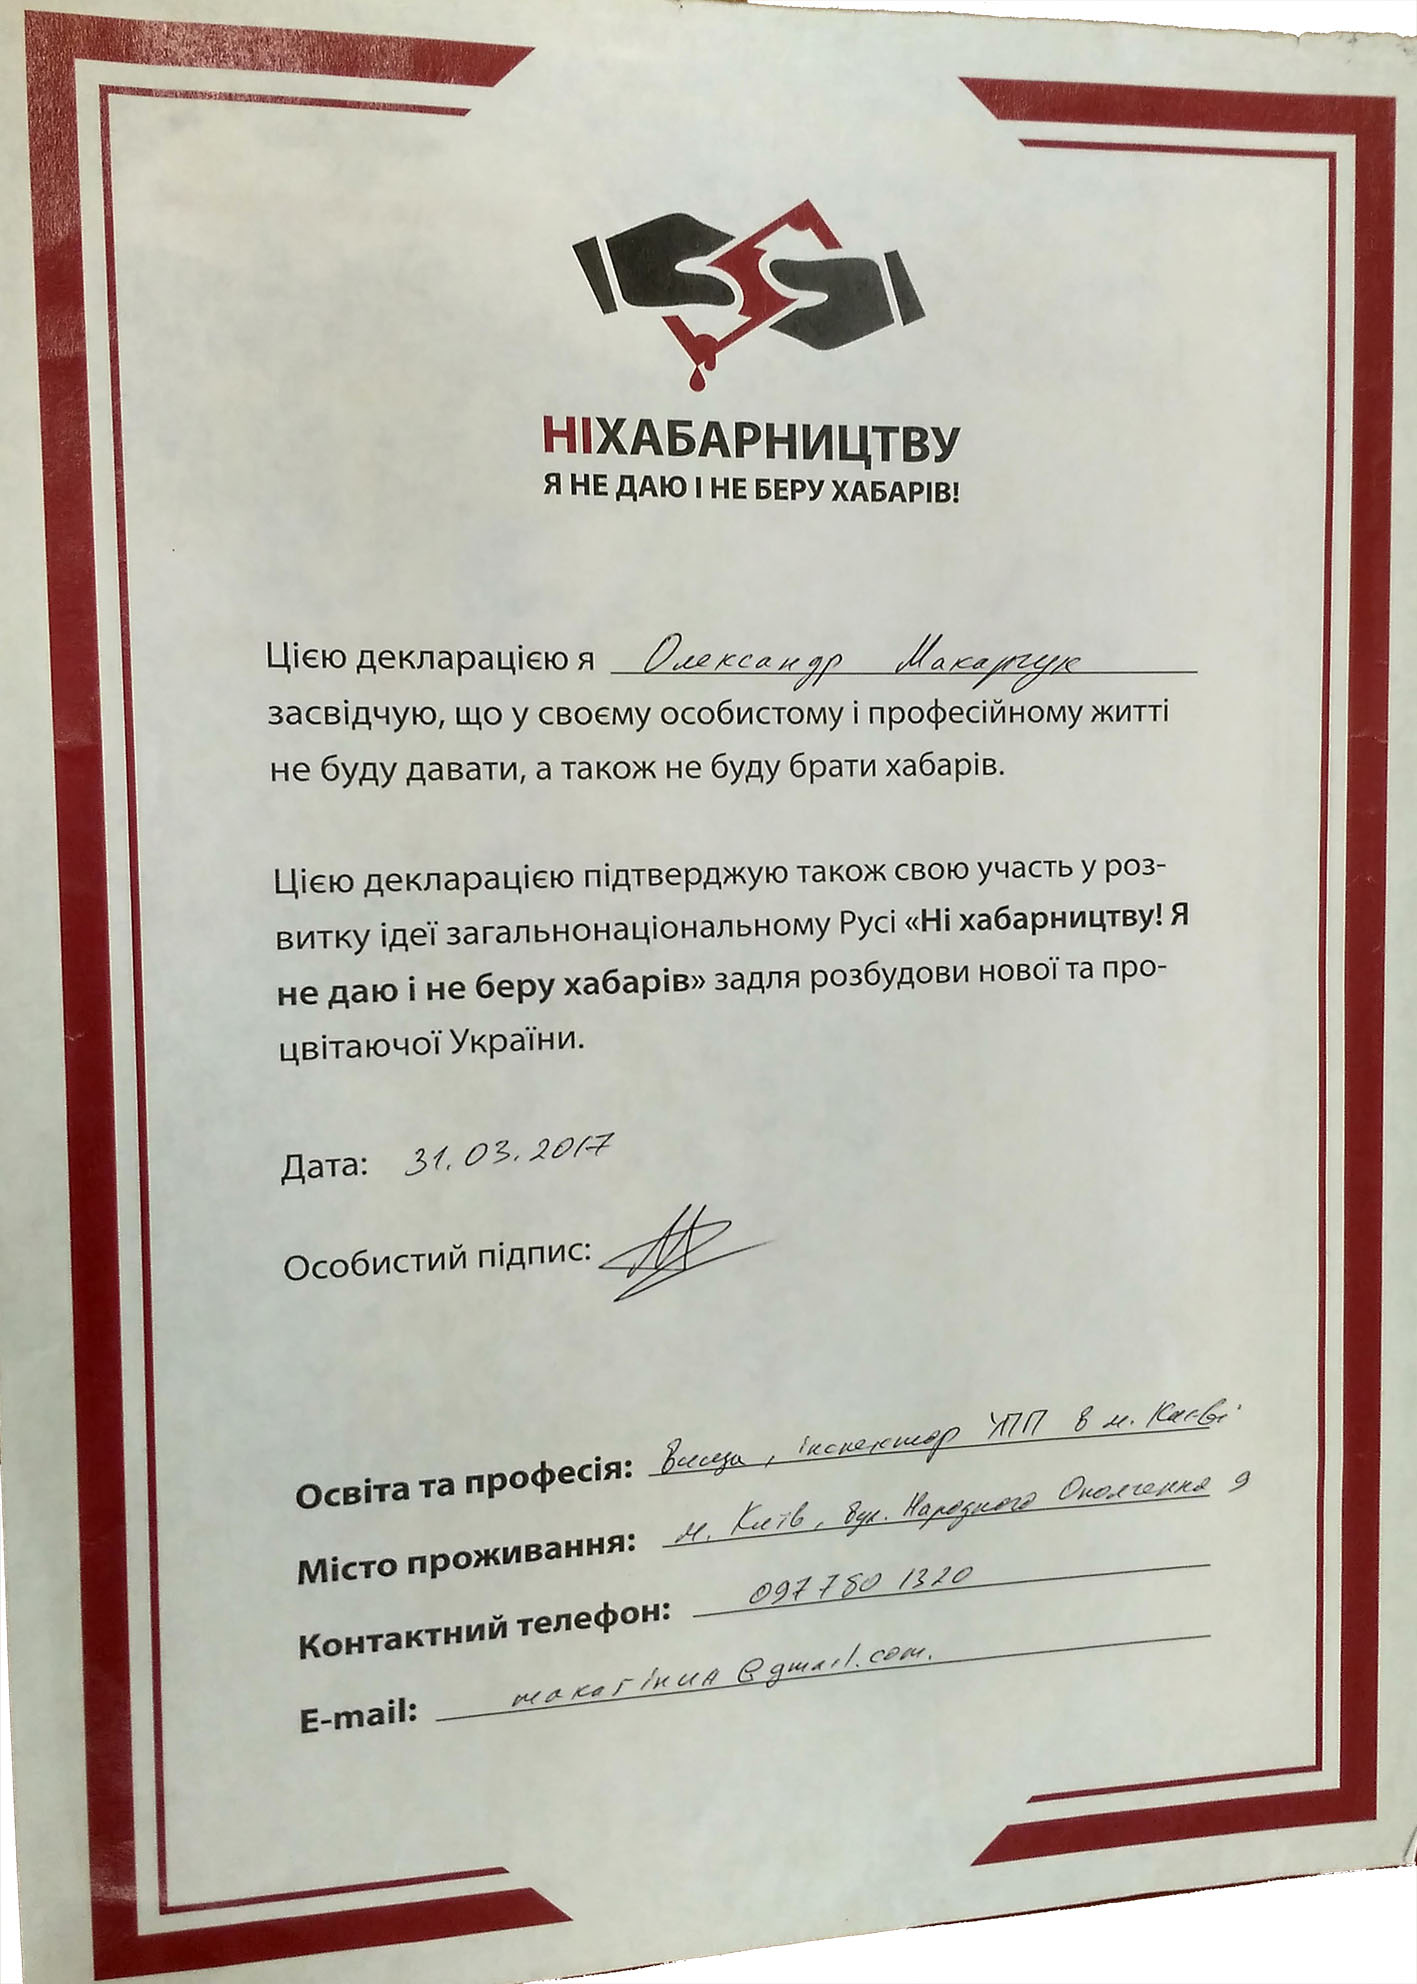 НІХАБАРНИЦТВУ
Я НЕ ДАЮ І НЕ БЕРУ ХАБАРІВ!
Цією декларацією я Олександр Макарчук
засвідчую, що у своєму особистому і професійному житті
не буду давати, а також не буду брати хабарів.
Цією декларацією підтверджую також свою участь у роз-
витку ідеї загальнонаціональному Русі «Ні хабарництву! Я
не даю і не беру хабарів» задля розбудови нової та про-
цвітаючої України.
Дата: 31.03.2017
Особистий підпис:
Освіта та професія: Вища, інспектор УПП в м. Києві
Місто проживання: м. Київ, вул. Народного Ополчення 9
Контактний телефон: 097 780 1320
E-mail: @gmail.com.